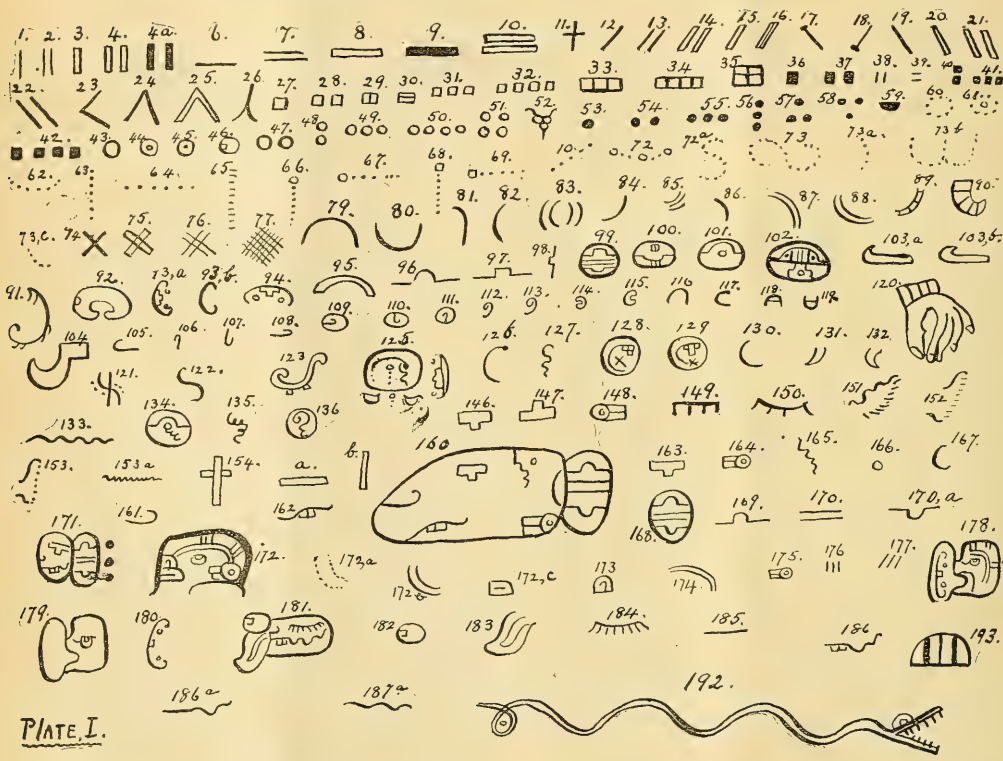 1. 2. 3. 4. 4a. 6. 7. 8. 9. 10. 11. 12. 13. 14. 15. 16. 17. 18. 19. 20. 21.
22. 23. 24. 25. 26. 27. 28. 29. 30. 31. 32. 33. 34. 35. 36. 37. 38. 39. 40. 41.
42. 43. 44. 45. 46. 47. 48. 49. 50. 51. 52. 53. 54. 55. 56. 57. 58. 59. 60.
62. 63. 64. 65. 66. 67. 68. 69. 72. 72a 73. 73a. 73b
73,c. 74. 75. 76. 77. 79. 80. 81. 82. (83.) 84. 85. 86. 87. 88. 89. 90.
91. 92. 93,b. 94. 95. 96. 97. 98. 99. 100. 101. 102. 103,a 103,b.
104. 105. 106. 107. 108. 109. 110. 111. 112. 113. 114. 115. 116 117. 118. 119. 120.
121. 122. 123 125. 126. 127. 128. 129 130. 131. 132.
133. 134. 135. 136 146. 147. 148. 149. 150. 151. 152.
153. 153a 154. a. b. 160 163. 164. 165. 166. 167.
161. 162. 168. 169. 170. 170,a
171. 172. 172,a 172,c 173 174. 175. 176 177. 178.
179. 180. 181. 182 183 184. 185. 186 193.
186a 187a 192.
PLATE, I.